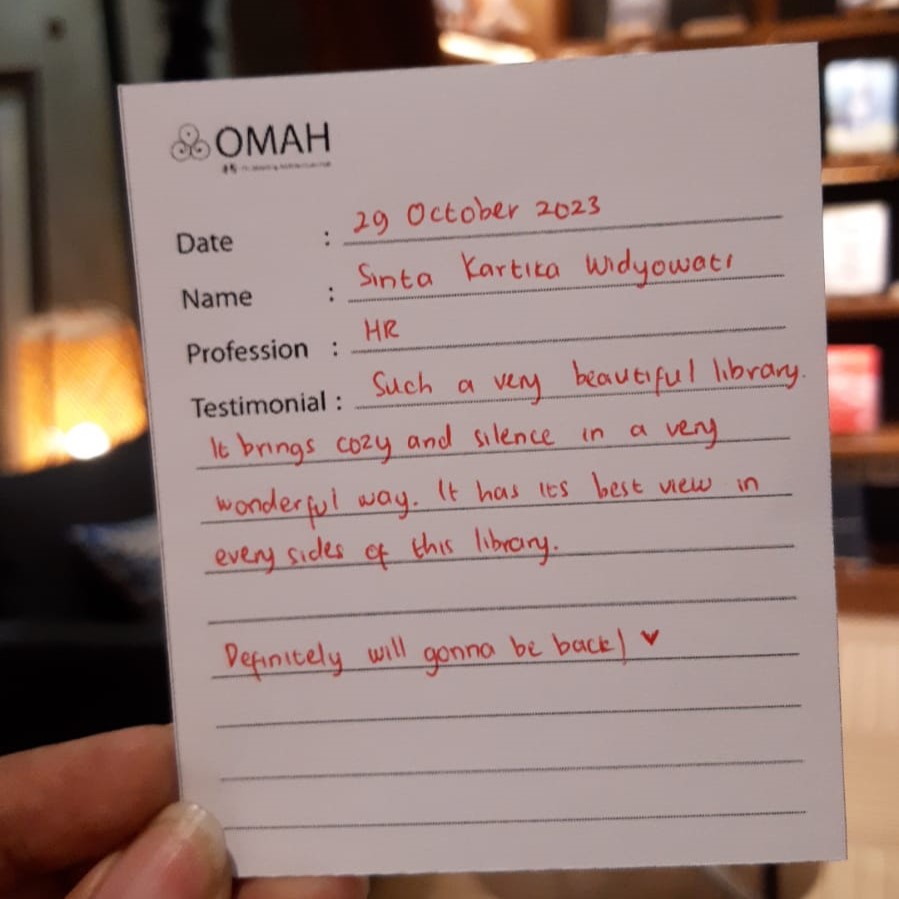 OMAH
Date : 29 October 2023
Name : Sinta Kartika Widyowati
Profession : HR
Testimonial : Such a very beautiful library.
It brings cozy and silence in a very
wonderful way. It has its best view in
every sides of this library.
Definitely will gonna be back! ♥